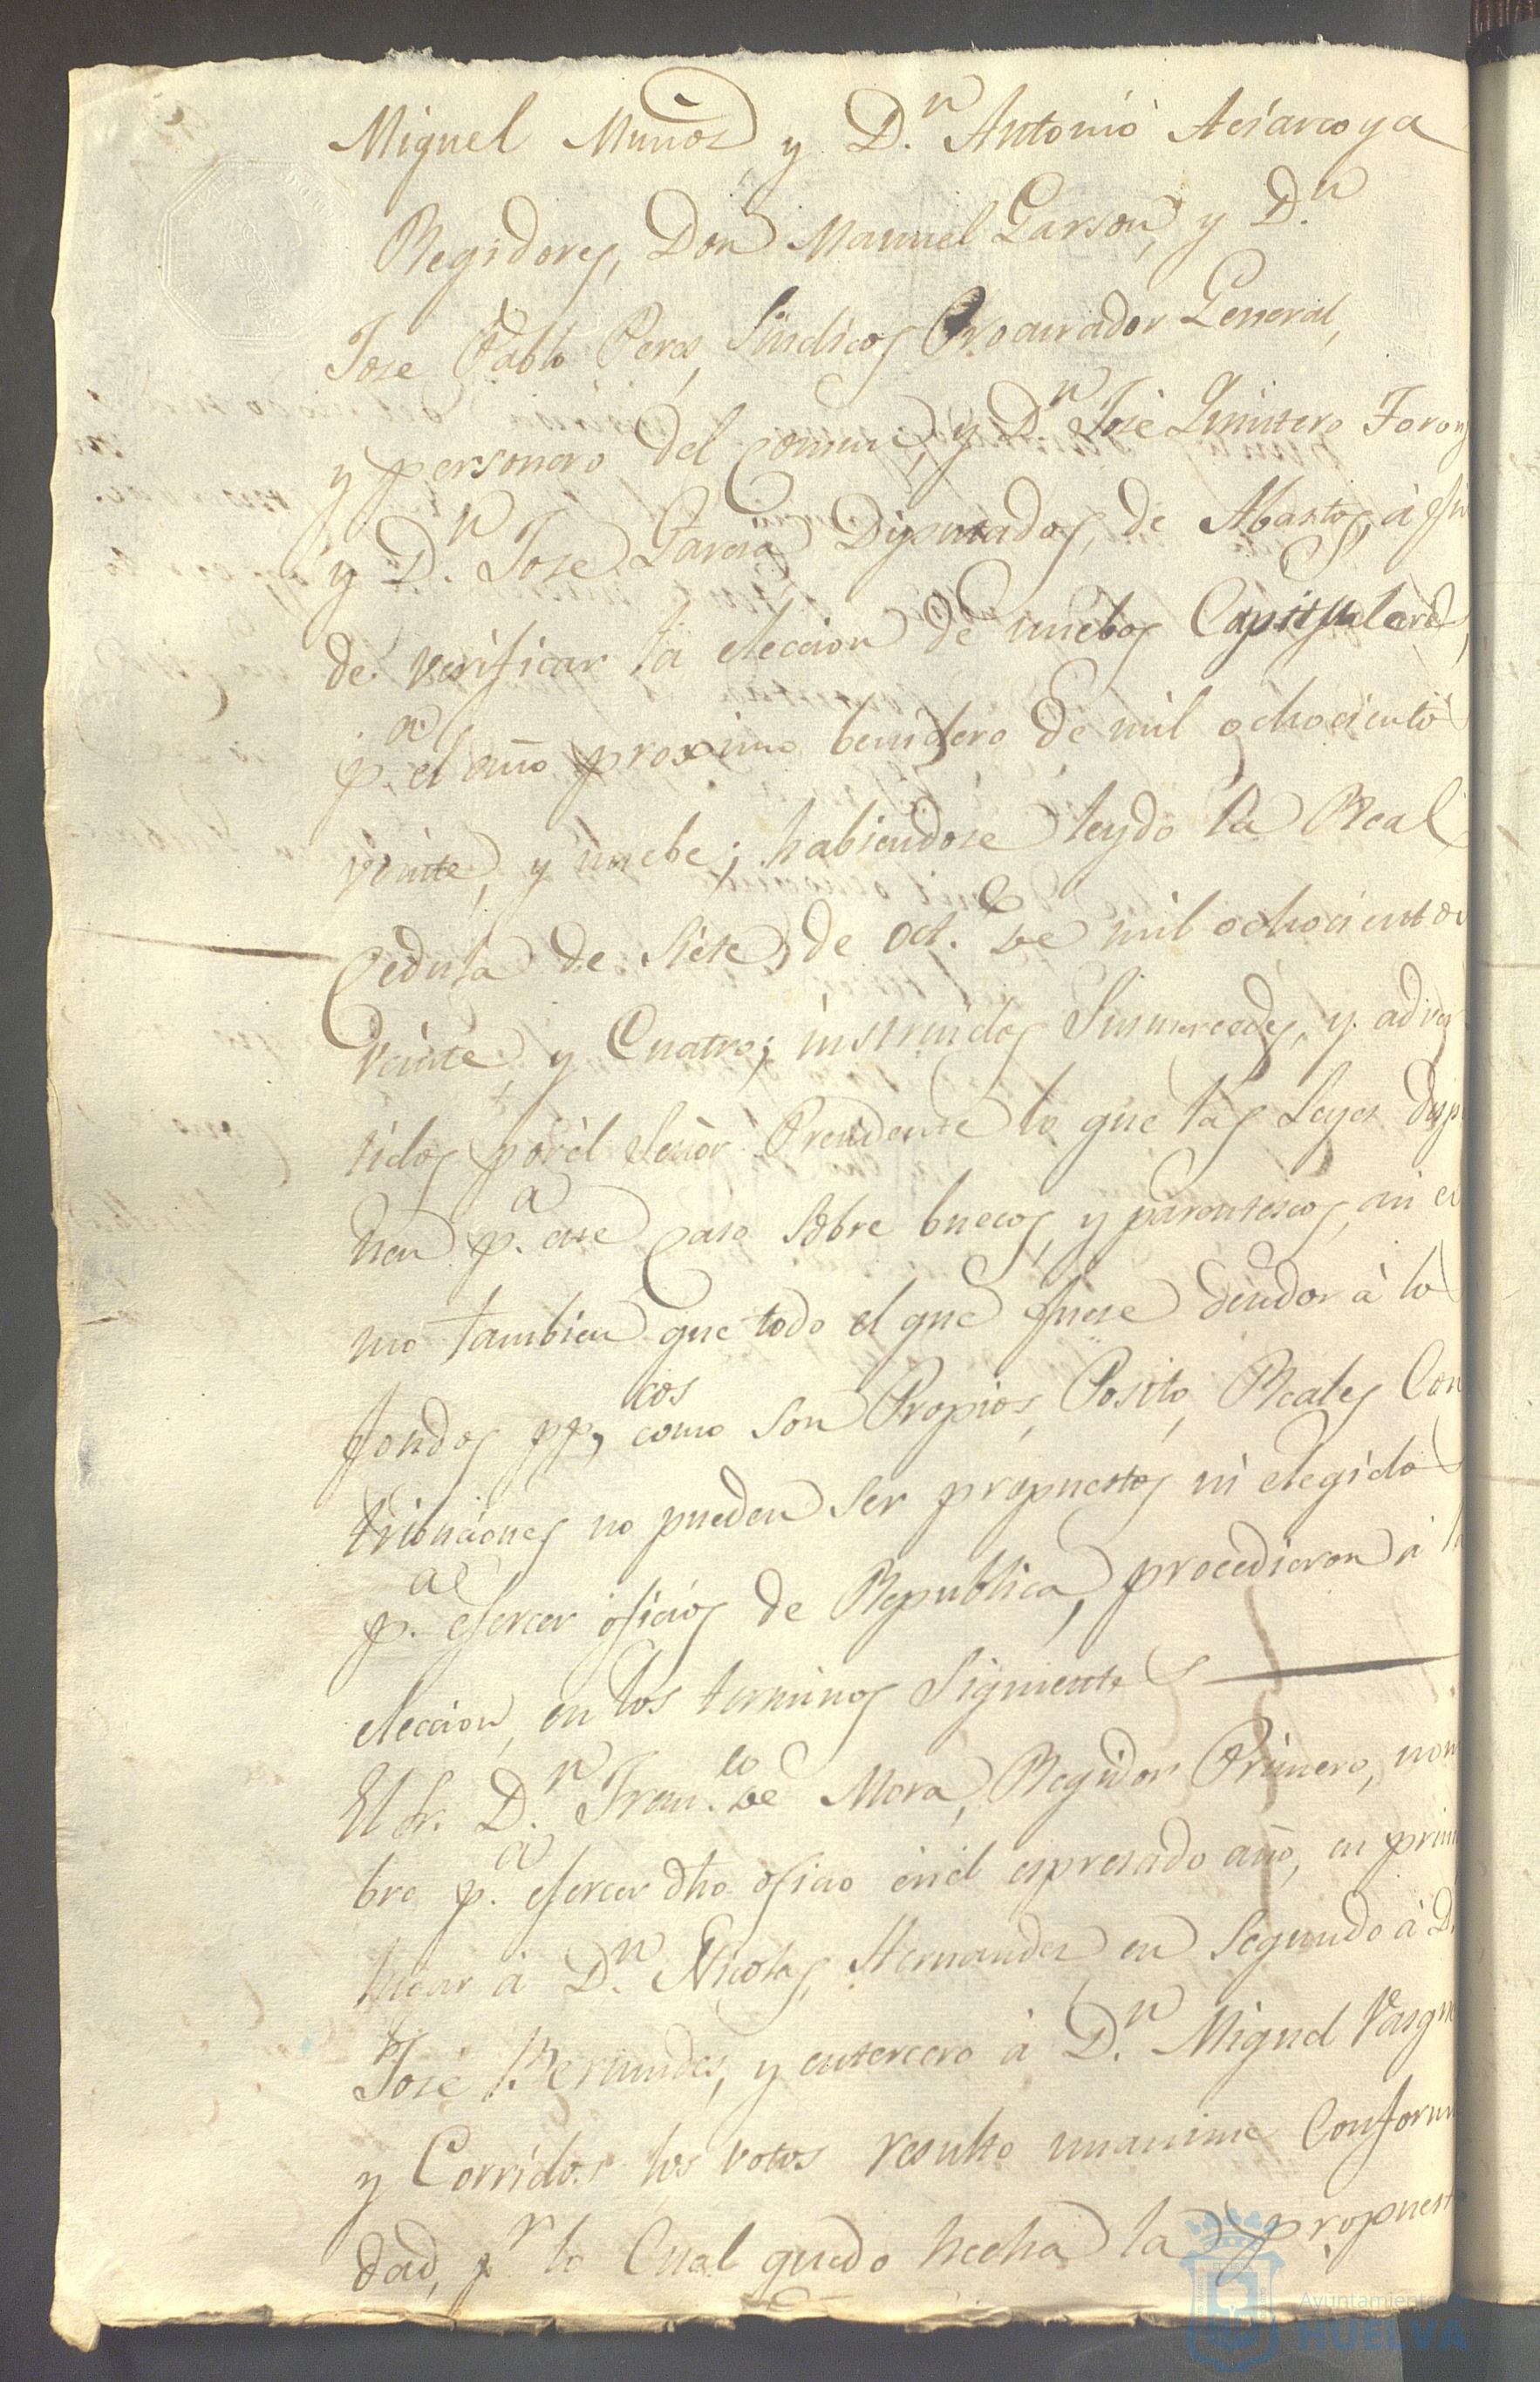 Miguel Muños y D.n Antonio
Regidores, Don Manuel Garson, y D.n
Jose Pablo Peres, Sindicos Procurador General,
y personero del Comun, y D.n José Quintero
y D.n Jose Garcia Diputados, de Abastos, à
de verificar la eleccion de nuebos Capitulares,
p.a el año proximo benidero de mil ochocientos
veinte, y nuebe; habiendose leydo la Real
Cedula de Siete de Oct.e de mil ochocientos
veinte, y Cuatro; instruidos Sus mercedes, y adver
tidos por el Señor Presidente lo que las Leyes dispo
nen p.a este caso sobre huecos, y parentescos, ni co
mo tambien que todo el que fuese deudor à lo
fondos pp,cos como son Propios, Posito, Reales Con
tribuciones no pueden ser propuestos ni elegido
p.a ejercer oficios de Republica, procedieron à la
eleccion, en los terminos Siguientes
El Sr. D.n Fran.co de Mora, Regidor Primero, nom
bro p.a ejercer dho oficio en el espresado año, en prim
lugar à D.n Nicolas Hernandez en Segundo à D.
José Bermudes, y en tercero à D.n Miguel Vasque
y Corridos los votos resulto unanime Conformi
dad, p.r lo Cual quedo hecha la propuest
Ayuntamiento
HUELVA